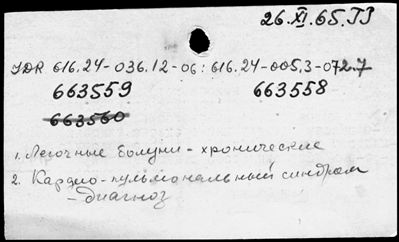 26.XI.65.ТЗ
УДК 616.24-036.12-06:616.24-005.3-072.7
663559 663558
663560
1. Легочные болезни - хронические
2. Кардио-пульмональный синдром
- диагноз